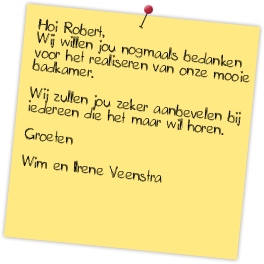 Hoi Robert,
Wij willen jou nogmaals bedanken
voor het realiseren van onze mooie
badkamer.
Wij zullen jou zeker aanbevelen bij
iedereen die het maar wil horen.
Groeten
Wim en Irene Veenstra